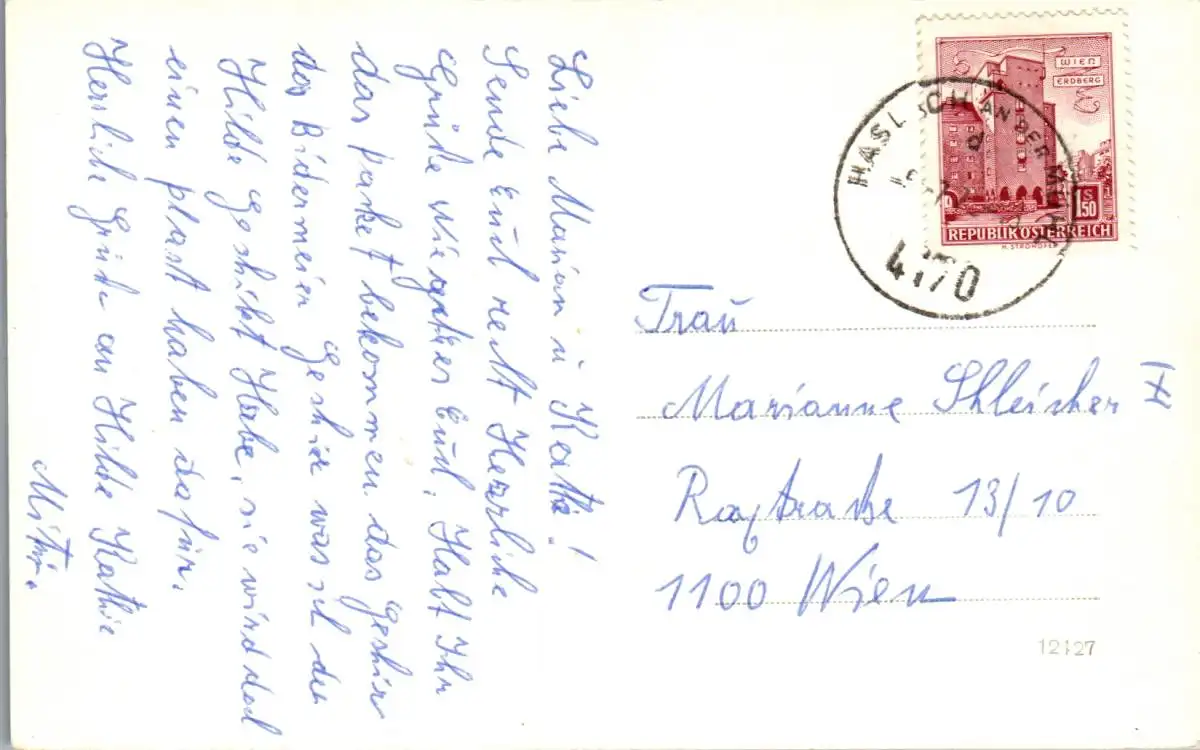 Liebe Marian u Kathi!
Sende Euch recht Herzliche
Grüße wie gehts Euch. Habt Ihr
das paket bekommen. das geshir
das Bidermeier geshir was ich der
Hilde geshikt Habe, sie wird doch
einen plast haben dafür.
Herzliche Grüße an Hilde Kathie
WIEN
ERDBERG
S
1.50
REPUBLIK ÖSTERREICH
H. STROHOFER
HASLACH AN DER MÜHL
4170
Frau
Marianne Shleicher
13/10
1100 Wien
12127